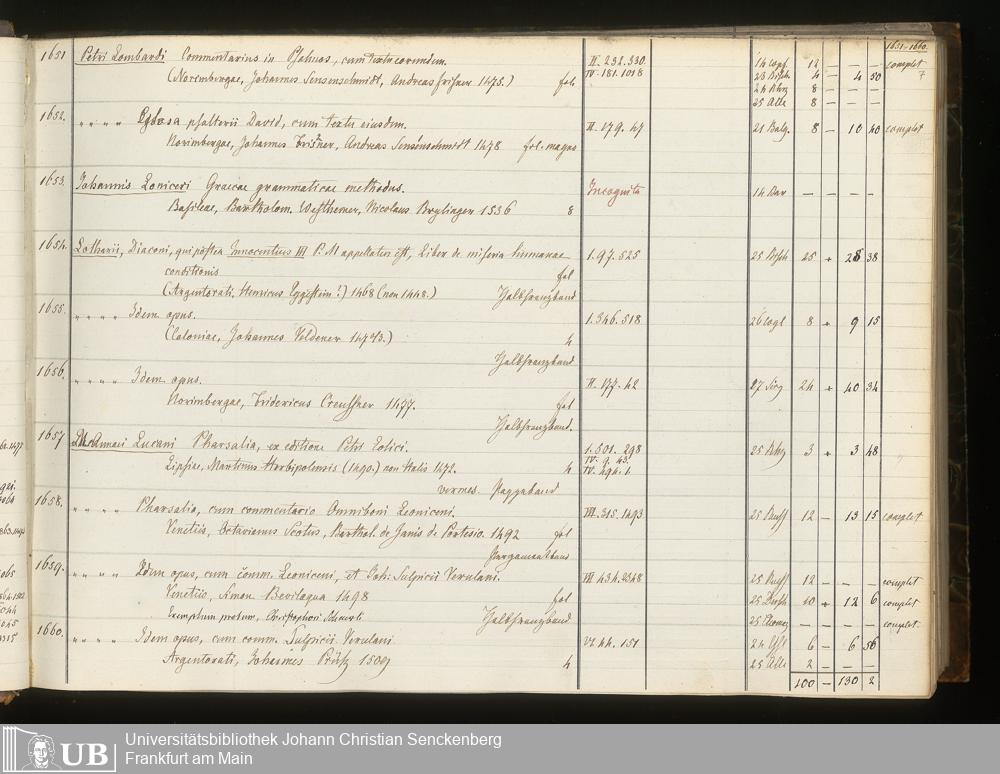 1651-1660.
1651 Petri Lombardi Commentarius in Psalmos, cum textu eorundem. II. 232. 330. 14 12 — — — complet
(Noremberge, Johannes Sensenschmidt, Andreas frisner 1478.) fol. IV. 181. 1018 23 4 — 4 50 7
24 8 — — —
25 Alle 8 — — —
1652. " " " " Glosa psalterii David, cum textu eiusdem. II. 179. 47 21 8 — 10 40 complet
Norimbergae, Johannes Frisner, Andreas Sensenschmidt 1478 fol. magno
1653. Johannis Loniceri Graecae grammaticae methodus. Incognita 14 — — — —
Basileae, Bartholom. Westhemer, Nicolaus Brylinger 1536 8
1654. Lotharii, Diaconi, qui postea Innocentius III P. M appellatus est, Liber de miseria humanae 1. 97. 525 25 25 + 25 38
conditionis fol
(Argentorati, Henricus Eggestein?) 1468 (non 1448.) Halbfranzband
1655. " " " " Idem opus. 1. 346. 518 26 8 + 9 15
(Coloniae, Johannes Veldener 1473.) 4
Halbfranzband
1656. " " " " Idem opus. II. 177. 42 27 24 + 40 34
Norimbergae, Fridericus Creussner 1477. fol
Halbfranzband.
1657 M. Annaei Lucani Pharsalia, ex editione Petri 1. 501. 298 25 3 + 3 48
Lipsiae, Martinus Herbipolensis (1490.) non Italis 1472. 4 IV. 9. 43.
IV. 496. 1.
vermes. Pappeband
1658. " " " " Pharsalia, cum commentario Omniboni Leoniceni. III. 315. 1493 25 12 — 13 15 complet
Venetiis, Octavianus Scotus, Barthol. de Zanis de Portesio. 1492 fol
Pergamentband
1659. " " " " Idem opus, cum comm. Leoniceni, et Joh: Sulpicii Verulani. III 434. 2548 25 12 — — — complet
Venetiis, Simon Bevilaqua 1498 fol 25 40 + 12 6 complet
Exemplum Christophori Scheurli Halbfranzband 25 — — — — complet
1660. " " " " Idem opus, cum comm. Sulpicii Verulani VI. 44. 151 24 6 — 6 56
Argentorati, Johannes Prüss 1509 4 25 Alle 2 — — —
100 — 130 2
UB
Universitätsbibliothek Johann Christian Senckenberg
Frankfurt am Main